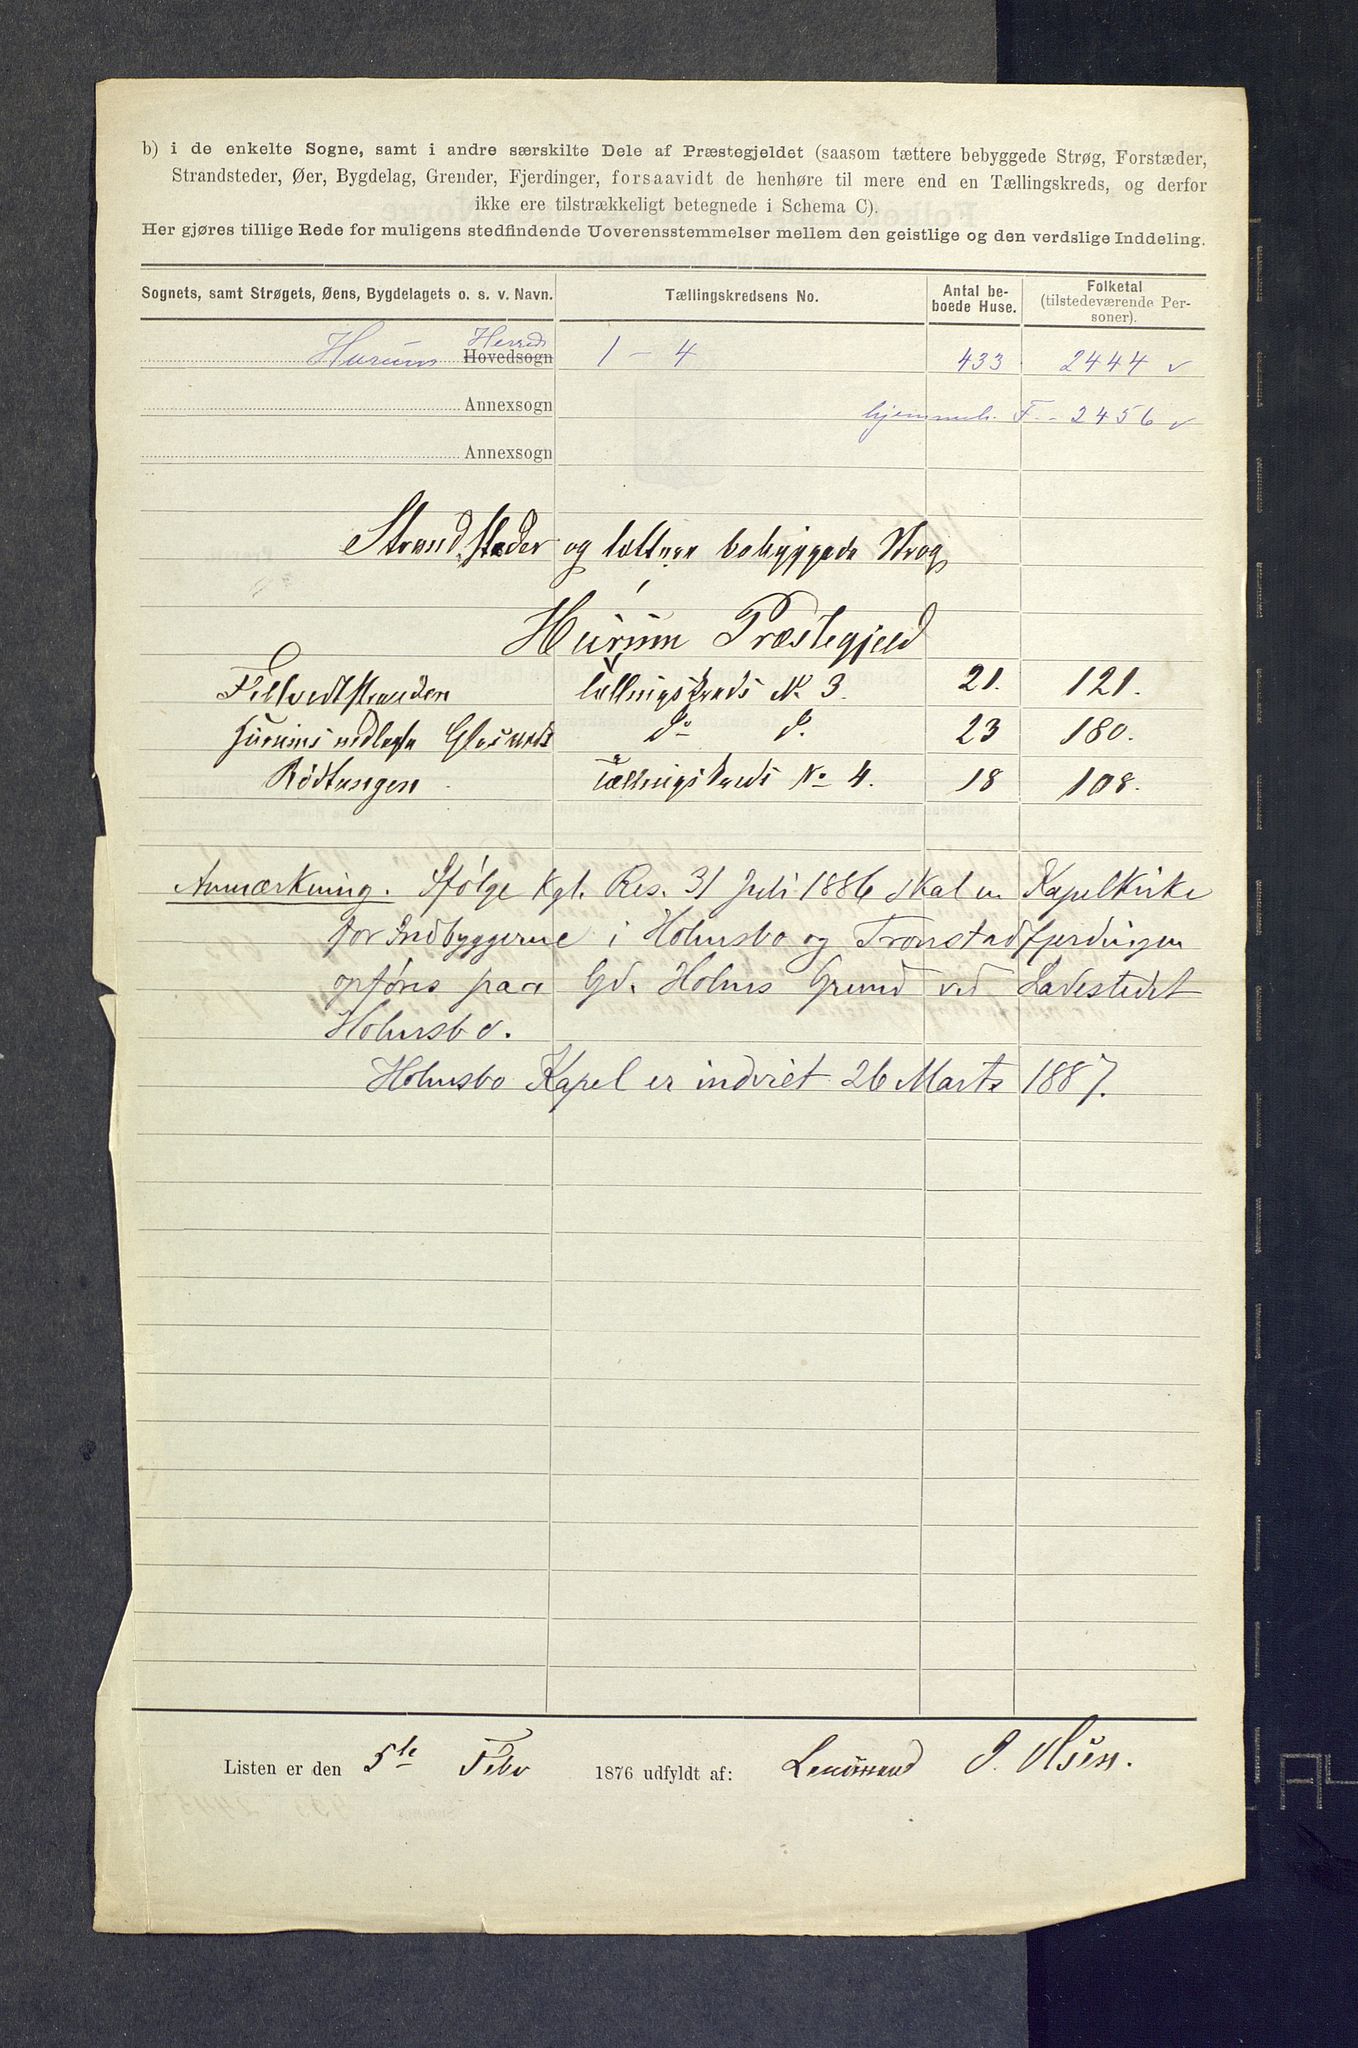 b) i de enkelte Sogne, samt i andre særskilte Dele af Præstegjeldet (saasom tættere bebyggede Strøg, Forstæder,
Strandsteder, Øer, Bygdelag, Grender, Fjerdinger, forsaavidt de henhøre til mere end en Tællingskreds, og derfor
ikke ere tilstrækkeligt betegnede i Schema C).
Her gjøres tillige Rede for muligens stedfindende Uoverensstemmelser mellem den geistlige og den verdslige Inddeling.
Sognets, samt Strøgets, Øens, Bygdelagets o. s. v. Navn. Tællingskredsens No. Antal be-boede Huse. Folketal (tilstedeværende Per-soner).
Herred
Hurums Hovedsogn 1 - 4 433 2444 v
Annexsogn hjemmeh. F. - 2456 v
Annexsogn
Strandsteder og tættere bebyggede Strøg
i
Hurum Præstegjeld
Filtvedtstranden Tællingskreds No 3. 21. 121.
Hurums nedlagte Glasværk Do Do. 23 180.
Rödtangen Tællingskreds No 4. 18 108.
Anmærkning. Ifølge Kgl. Res. 31 Juli 1886 skal en Kapelkirke
for Indbyggerne i Holmsbo og Tronstadfjerdingen
opføres paa Gd. Holms Grund ved Ladestedet
Holmsbo.
Holmsbo Kapel er indviet 26 Marts 1887.
Listen er den 5te Febr 1876 udfyldt af: Lensmand J. Olsen.